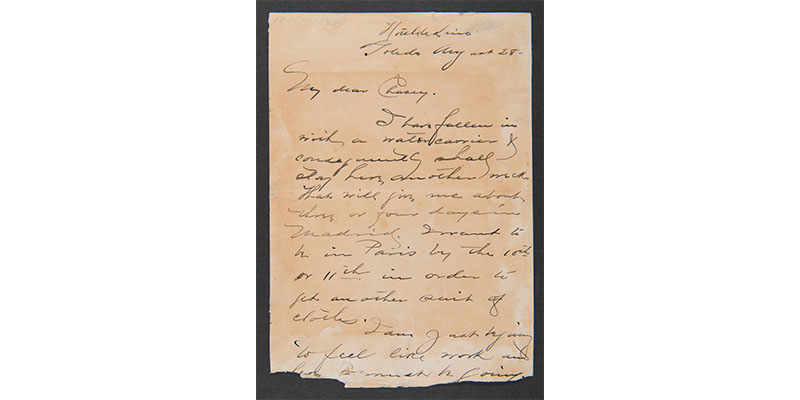 Toledo August 28
My dear Chasey.
I have fallen in
with a water carrier &
consequently shall
stay here another week
that will give me about
three or four days in
Madrid. I want to
be in Paris by the 10th
or 11th in order to
get another suit of
clothes.
I am just trying
to feel like work and
here I must be going